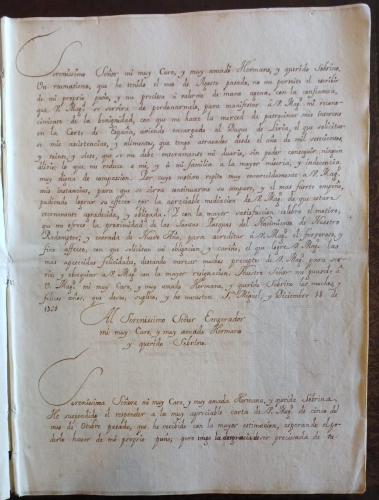 Serenissimo Señor mi muy Caro, y muy amado Hermano, y querido Sobrino.
Un reumatismo, que he tenido el mes de Agosto pasado, no me permite el escribir
de mi propio puño, y me precisa a valerme de mano agena, con la confianza,
que V. Mag.d se servira de perdonarmelo, para manifestar a V. Mag.d mi recono-
cimiento de la benignidad, con que me hace la merced de patrocinar mis intereses
en la Corte de España, haviendo encargado al Duque de Liria, el que solicitase
mis asistencias, y alimentos, que tengo atrasados desde el año de mil setecientos,
y veinte, y siete, que se me debe enteramente mi duario, sin poder conseguir ningun
alivio; lo que me reduce a mi, y a mi familia a la mayor miseria, y indecencia
muy digna de compasion. Por cuyo motivo repito muy encarecidamente a V. Mag.d
mis instancias, para que se sirva continuarme su amparo, y el mas fuerte empeño,
pudiendo lograr su efecto por la apreciable mediacion de V. Mag.d de que estaré
eternamente agradecida, y obligada. Y con la mayor satisfacion celebro el motivo,
que me ofrece la proximidad de las Santas Pasquas del Nacimiento de Nuestro
Redemptor, y entrada de Nuebo Año, para acreditar a V. Mag.d el fervoroso, y
fino affecto, con que solicitan mi obligacion, y Cariño, el que logre V. Mag.d las
mas apetecidas felicidades, deseando merecer muchos preceptos de V. Mag.d para ser-
vir, y obsequiar a V. Mag.d con la mayor resignacion. Nuestro Señor me guarde a
V. Mag.d mi muy Caro, y muy amado Hermano, y querido Sobrino los muchos, y
felices años, que deseo, suplico, y he menester. S.n Miguel, y Diciembre 18 de
Al Serenissimo Señor Emperador
mi muy Caro, y muy amado Hermano
y querido Sobrino.
Serenissima Señora mi muy Cara, y muy amada Hermana, y querida Sobrina.
He suspendido el responder a la muy apreciable carta de V. Mag.d de cinco del
mes de Octubre pasado, que he recibido con la mayor estimacion, esperando el po-
derlo hacer de mi propio puño; pero tengo la desgracia de ser precisada de va-